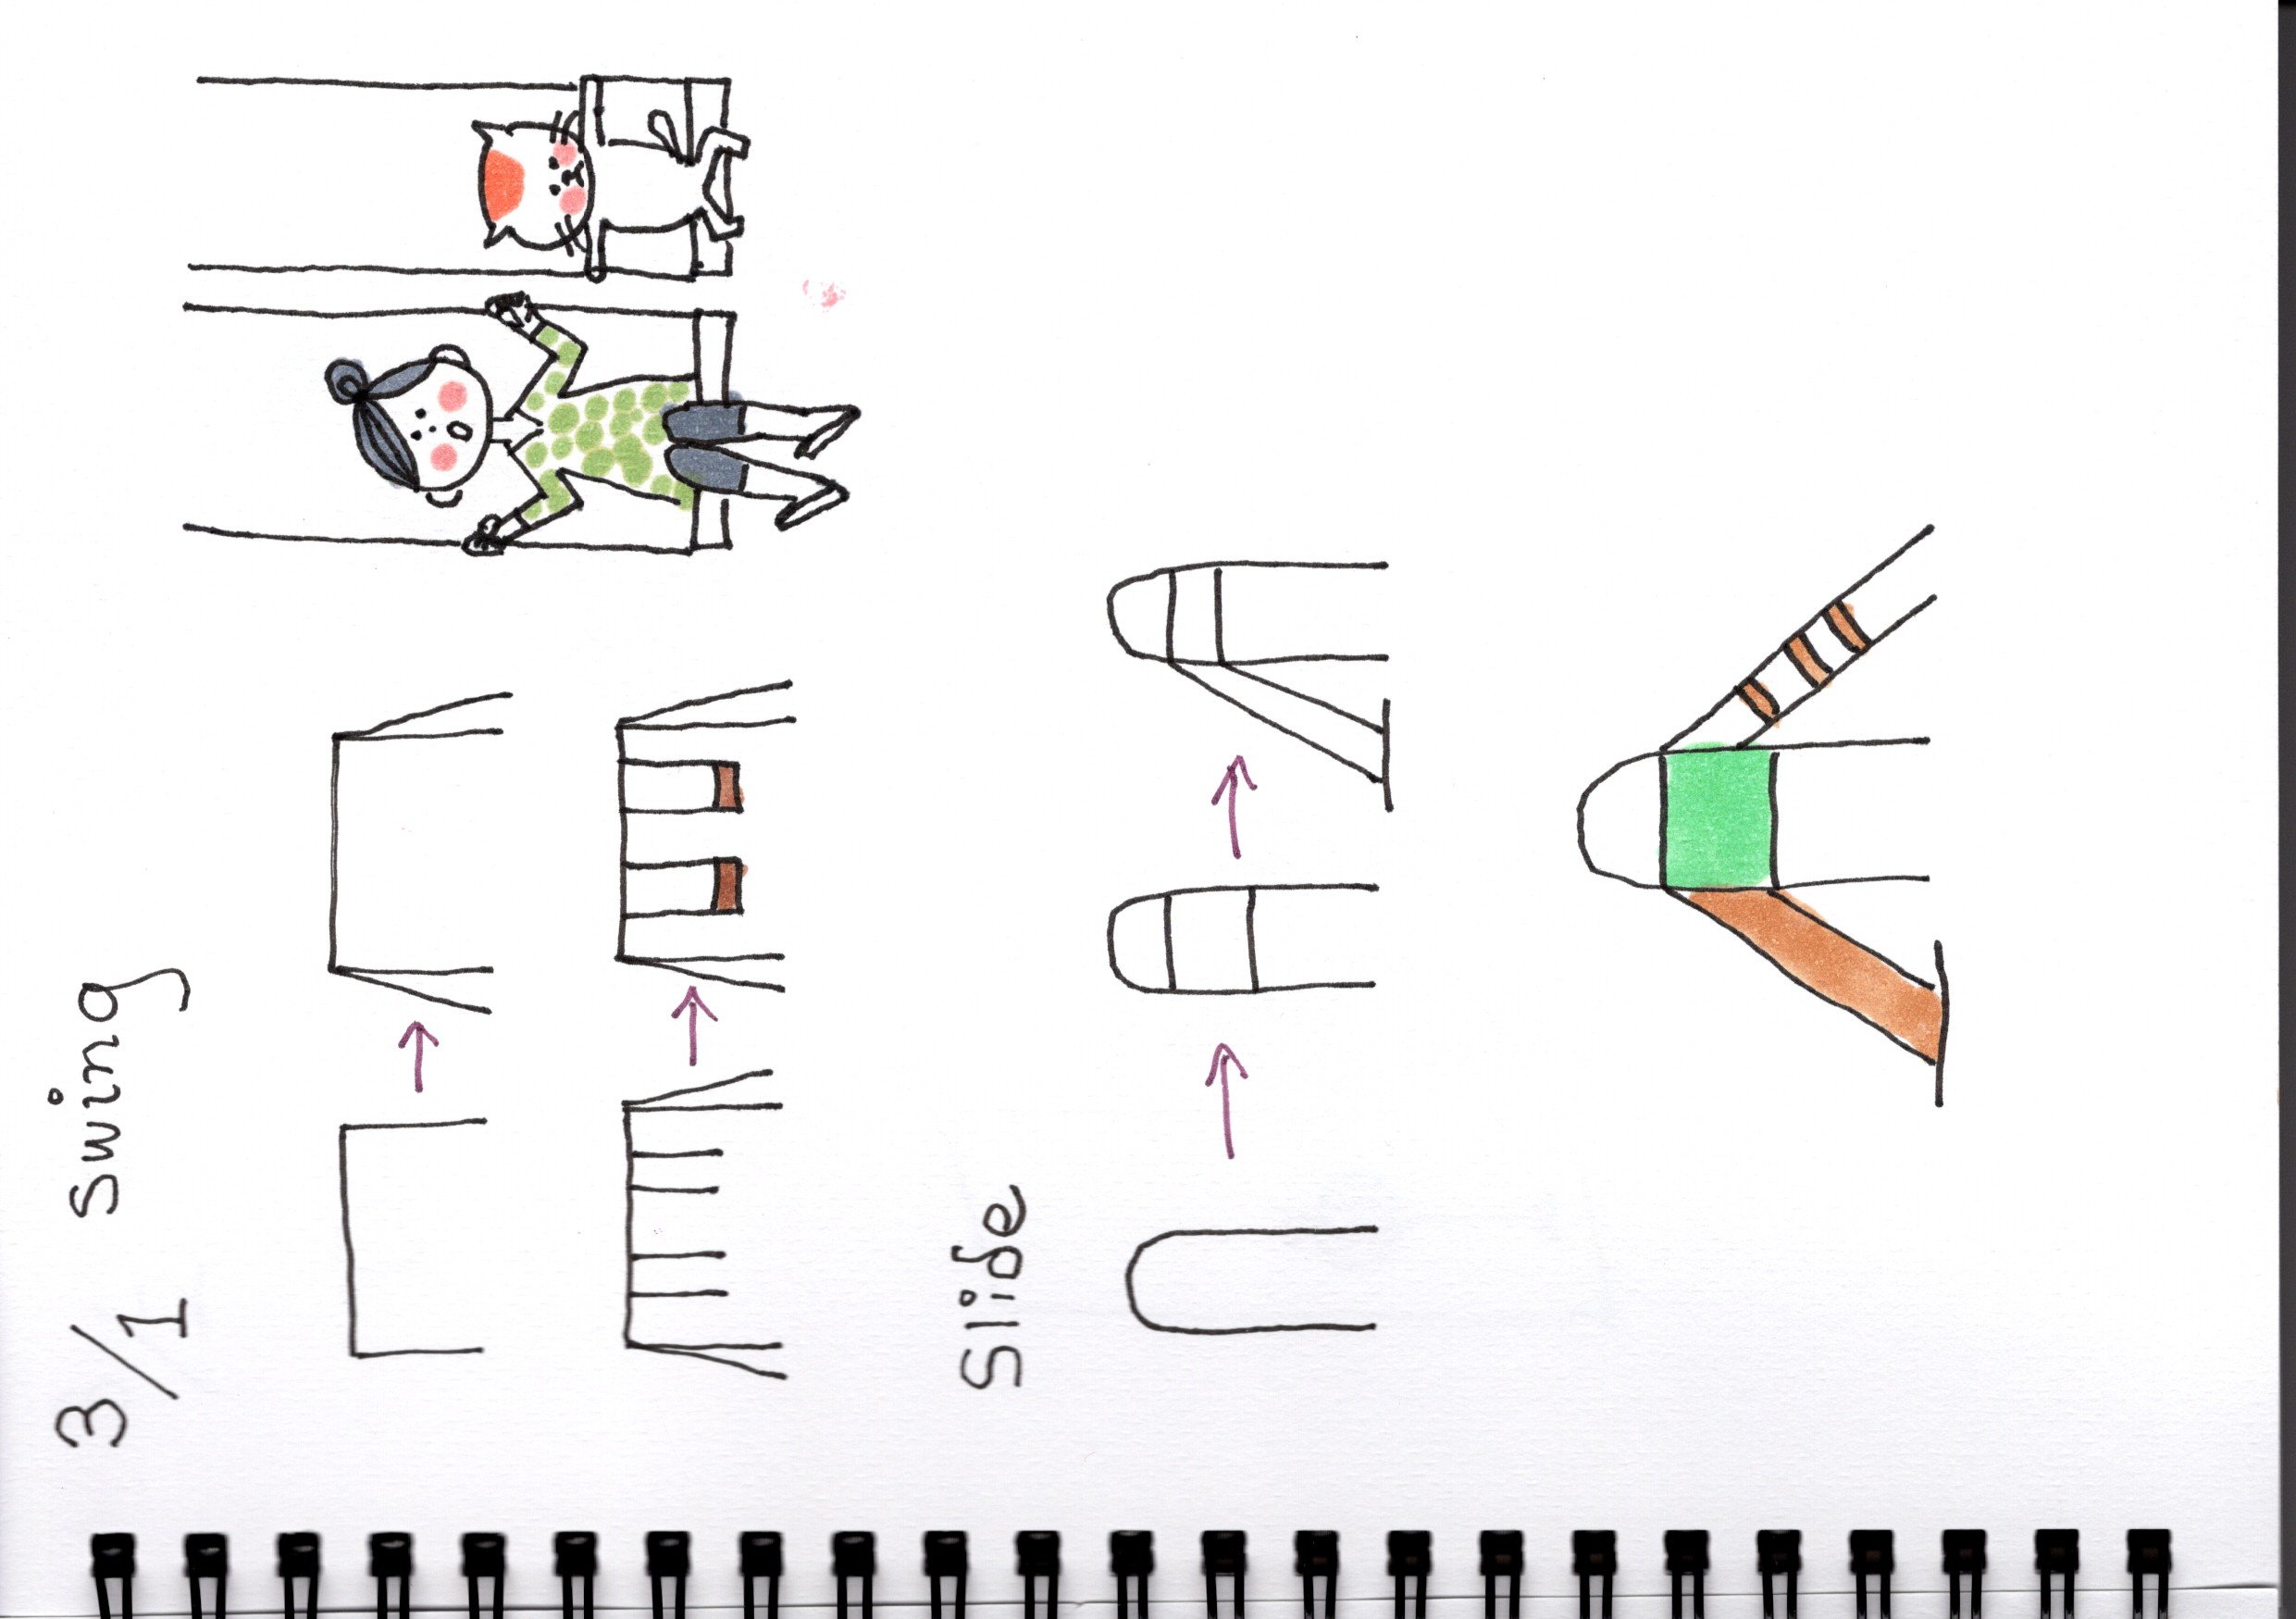 3/1 swing
Slide